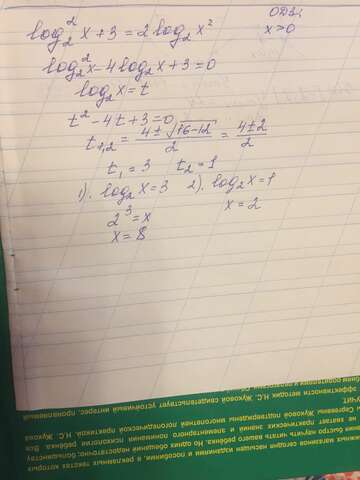 log₂² x + 3 = 2 log₂ x²
ОДЗ:
x > 0
log₂² x − 4 log₂ x + 3 = 0
log₂ x = t
t² − 4t + 3 = 0
t₁,₂ = (4 ± √16−12)/2 = (4 ± 2)/2
t₁ = 3 t₂ = 1
1). log₂ x = 3 2). log₂ x = 1
2³ = x x = 2
x = 8
учит.
эффективности методик Н.С. Жуковой свидетельствует устойчивый интерес, проявляемый
Сервисы Жуковой подтверждены многолетней логопедической практикой. Н.С. Жукова
не хватает практических знаний и элементарного понимания психологии ребёнка. Все
бами быстро научить читать вашего ребёнка. Но одних обещаний недостаточно: большинству
нижных магазинов сегодня насыщен изданиями и пособиями, в рекламных текстах которых